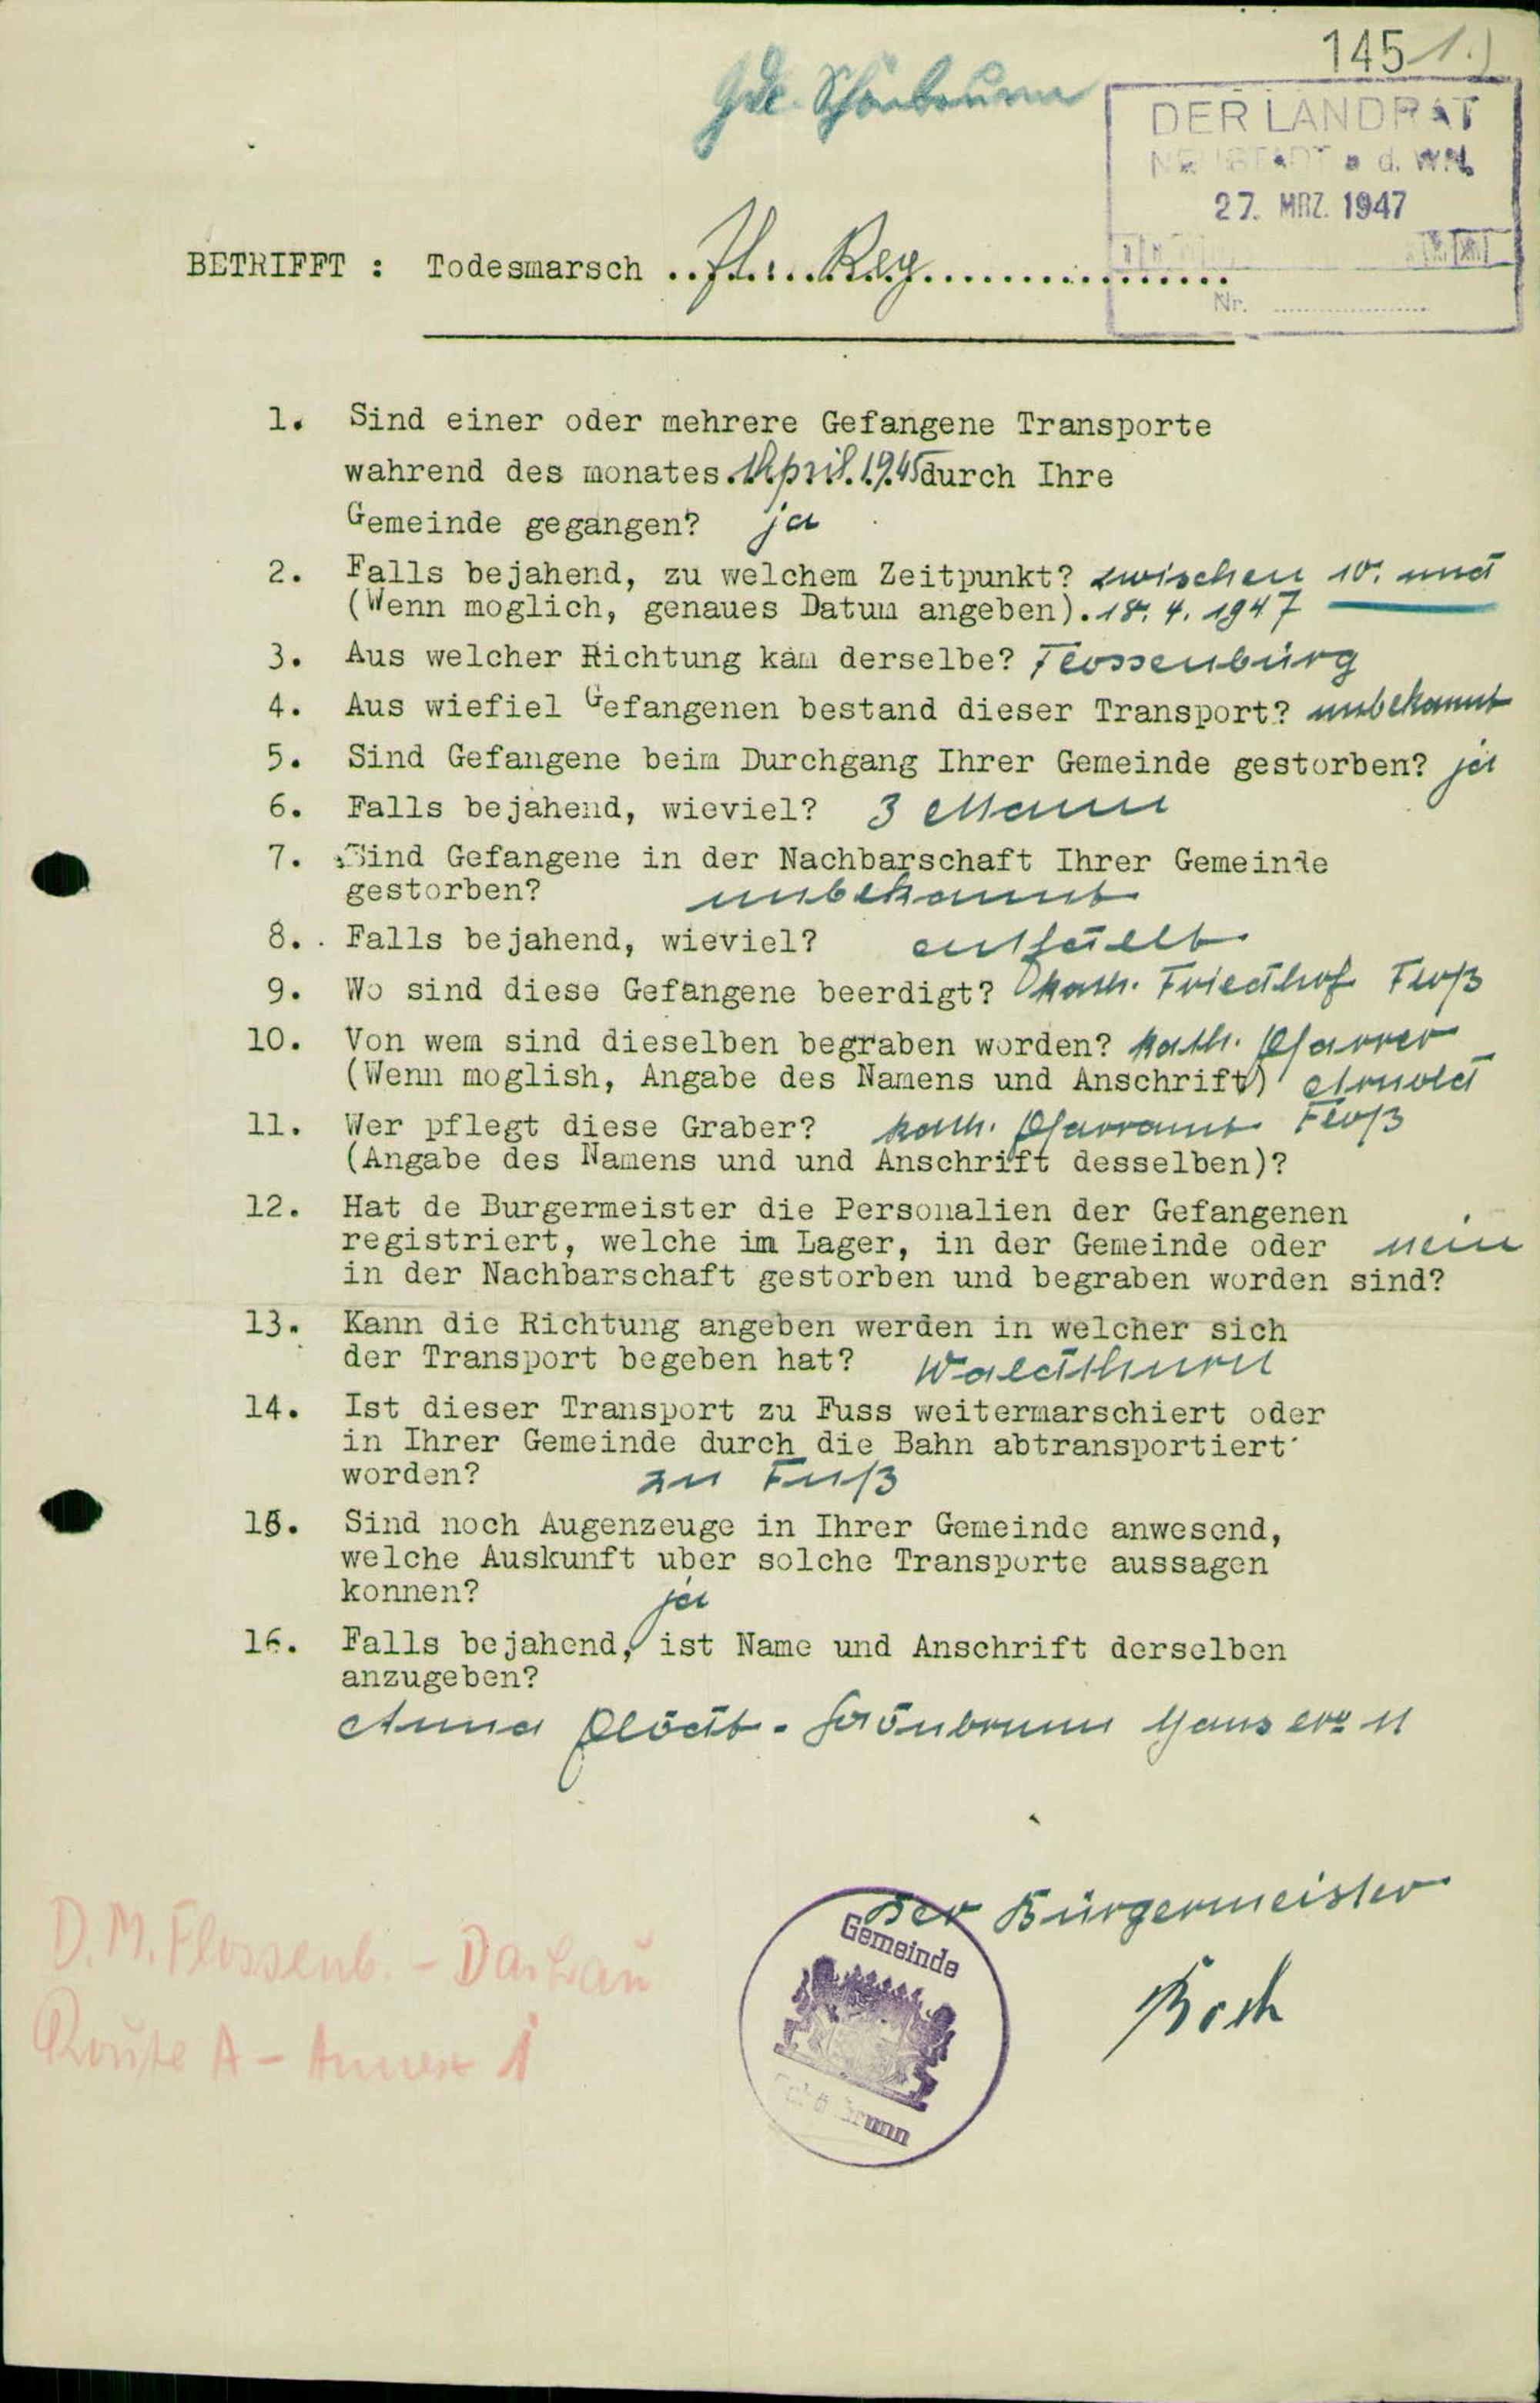 145 1.)
Gde. Schönbrunn
DER LANDRAT
NEUSTADT a. d. WN.
27. MRZ. 1947
Nr. ....................
BETRIFFT : Todesmarsch ..Fl....Reg................
1. Sind einer oder mehrere Gefangene Transporte
wahrend des monates.April.1945 durch Ihre
Gemeinde gegangen? ja
2. Falls bejahend, zu welchem Zeitpunkt? zwischen 10. und
(Wenn moglich, genaues Datum angeben). 18. 4. 1947
3. Aus welcher Richtung kam derselbe? Flossenbürg
4. Aus wiefiel Gefangenen bestand dieser Transport? unbekannt
5. Sind Gefangene beim Durchgang Ihrer Gemeinde gestorben? ja
6. Falls bejahend, wieviel? 3 Mann
7. Sind Gefangene in der Nachbarschaft Ihrer Gemeinde
gestorben? unbekannt
8. . Falls bejahend, wieviel? entfällt
9. Wo sind diese Gefangene beerdigt? kath. Friedhof Floß
10. Von wem sind dieselben begraben worden? kath. Pfarrer
(Wenn moglish, Angabe des Namens und Anschrift) Arnold
11. Wer pflegt diese Graber? kath. Pfarramt Floß
(Angabe des Namens und und Anschrift desselben)?
12. Hat de Burgermeister die Personalien der Gefangenen
registriert, welche im Lager, in der Gemeinde oder nein
in der Nachbarschaft gestorben und begraben worden sind?
13. Kann die Richtung angeben werden in welcher sich
der Transport begeben hat? Waldthurn
14. Ist dieser Transport zu Fuss weitermarschiert oder
in Ihrer Gemeinde durch die Bahn abtransportiert
worden? zu Fuß
15. Sind noch Augenzeuge in Ihrer Gemeinde anwesend,
welche Auskunft uber solche Transporte aussagen
konnen? ja
16. Falls bejahend, ist Name und Anschrift derselben
anzugeben?
Anna Plödt - Schönbrunn Haus No 11
Der Bürgermeister
Gemeinde
Schönbrunn
D.M. Flossenb. - Dachau
Route A - Annex 1